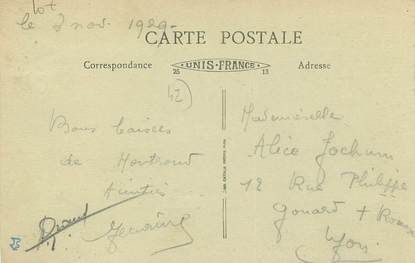 Lot
le 7 nov. 1929-
CARTE POSTALE
Correspondance
UNIS-FRANCE
25
13
Adresse
42
Bons baisers
de Montrond
Amitiés
Mademoiselle
Alice Jochum
12 Rue Philippe
Gonard
Lyon.